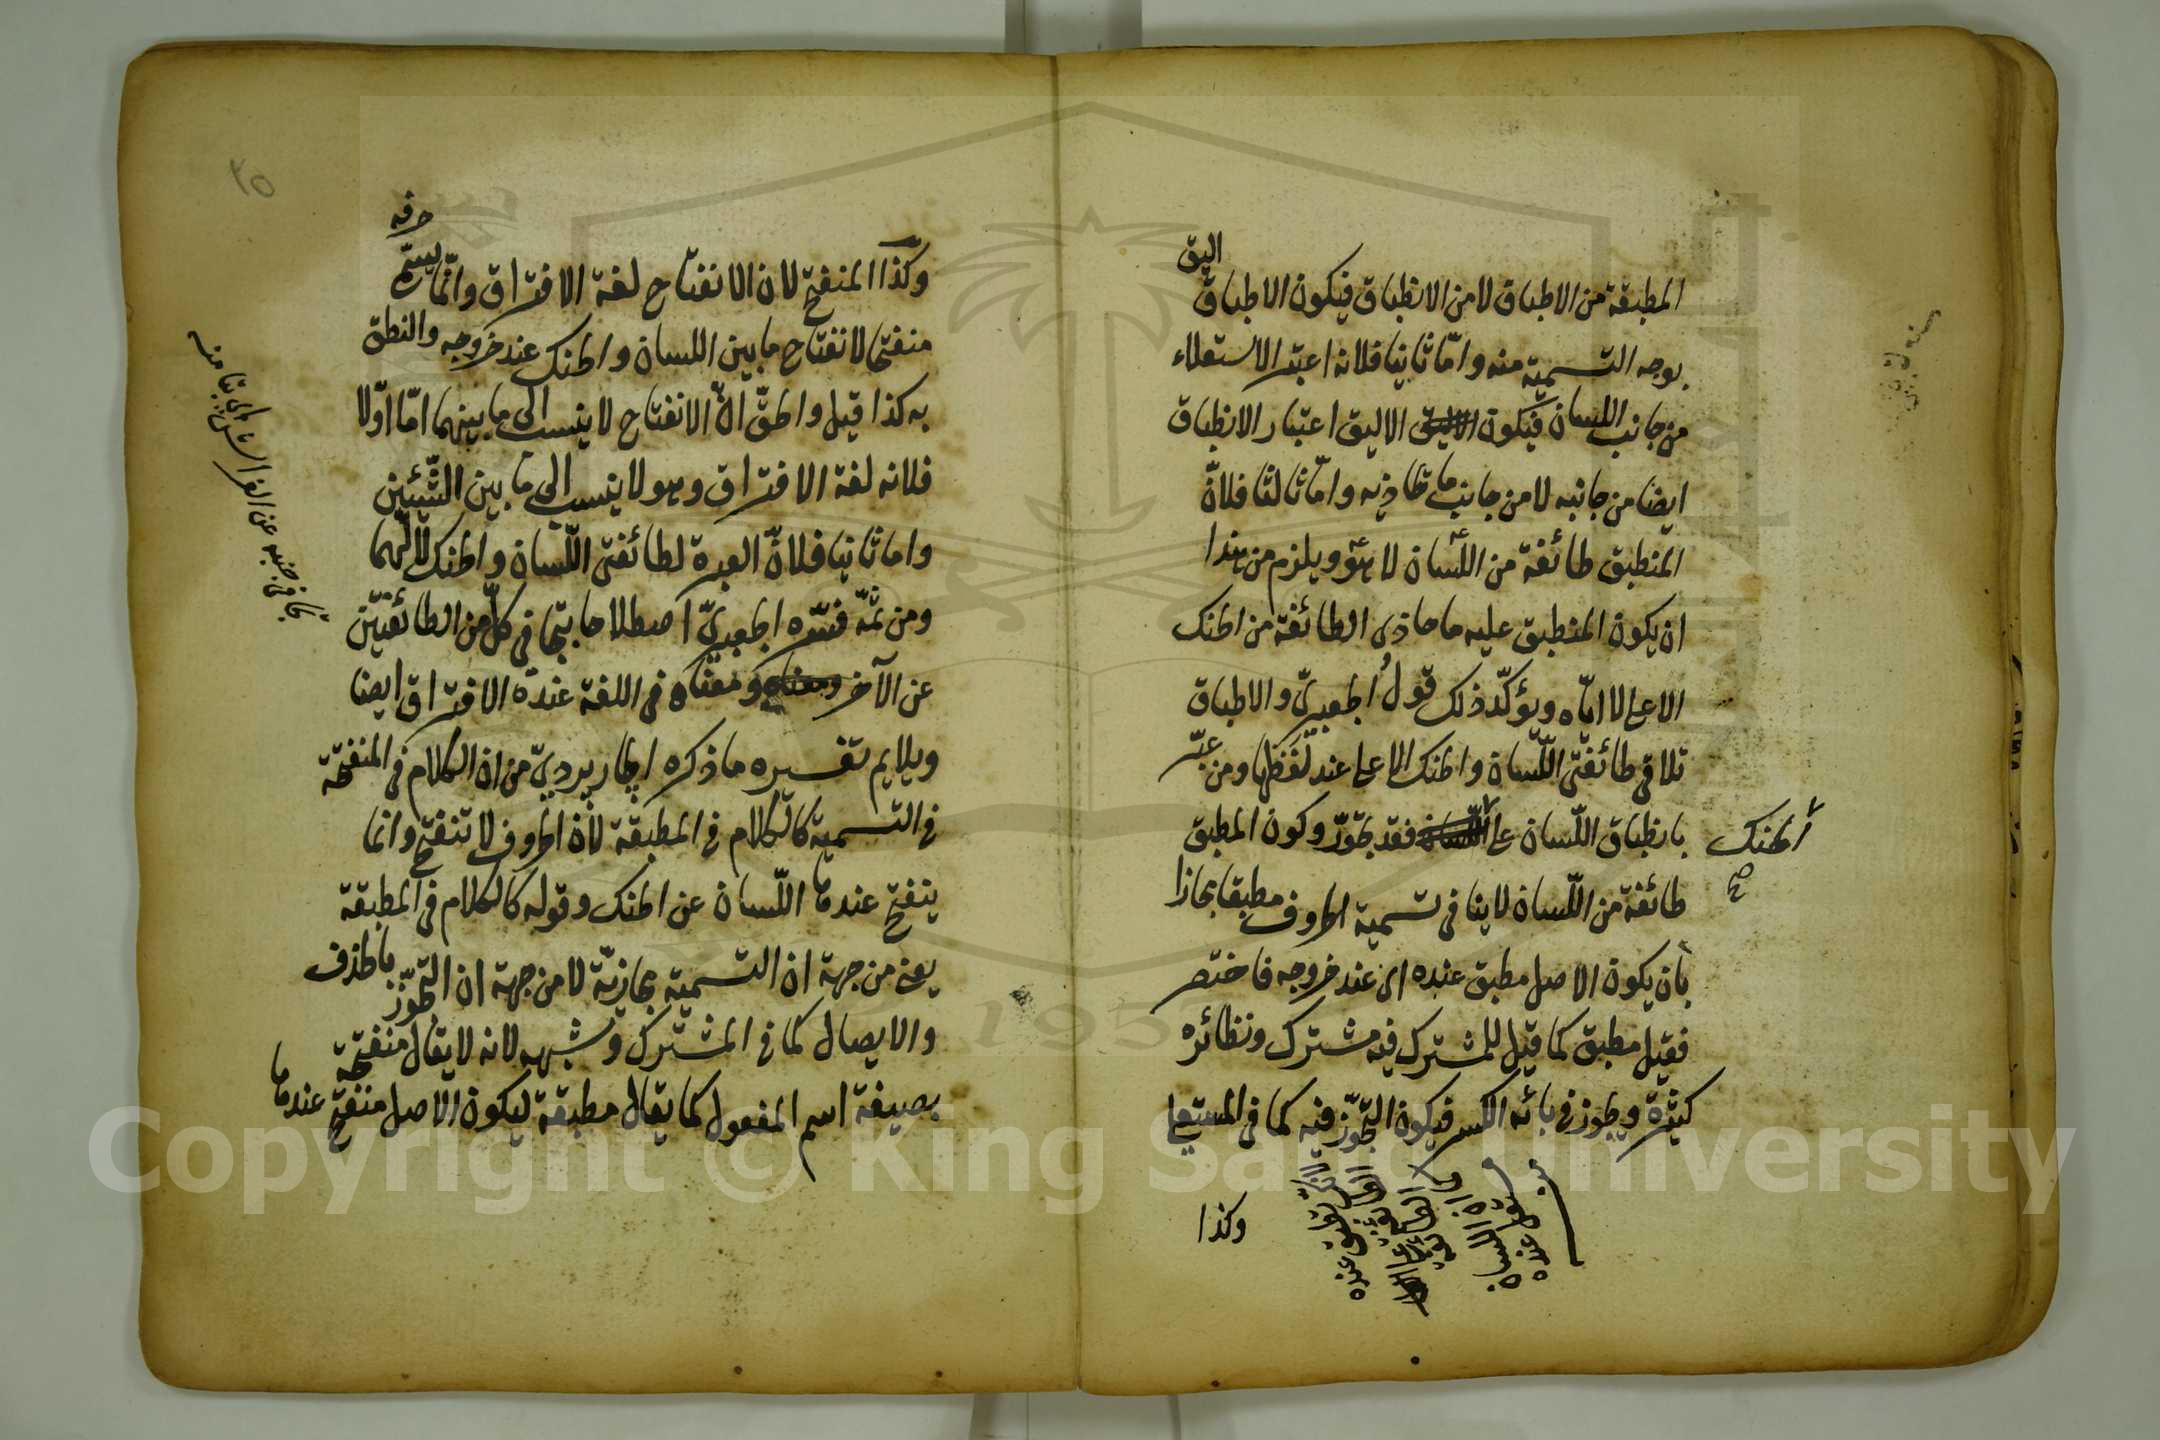 المطبقة من الاطباق لا من الانطباق فيكون الاطباق اليق
بوجه التسمية منه واما ثانيا فلانه اعتبر الاستعلاء
من جانب اللسان فيكون الاليق اعتبار الانطباق
ايضا من جانبه لا من جانب ما تحاذيه واما ثالثا فلان
المنطبق طائفة من اللسان لا هو ويلزم من هذا
ان يكون المنطبق عليه ما حاذى الطائفة من الحنك
الاعلى لا اياه ويؤكد ذلك قول الجعبري والاطباق
تلاقى طائفتى اللسان والحنك الاعلى عند لفظها ومن عبر
بانطباق اللسان على الحنك فقد تجوز وكون المطبق
طائفة من اللسان لا ينافى تسمية الحروف مطبقا مجازا
بان يكون الاصل مطبق عنده اى عند خروجه فاختصر
فقيل مطبق كما قيل للمشترك فيه مشترك ونظائره
كثيرة ويجوز فى بائه الكسر فيكون التجوز فيه كما فى المستعلى
وكذا
٣٥
وكذا المنفتح لان الانفتاح لغة الافتراق وانما يسمى حرفه
منفتحا لانفتاح ما بين اللسان والحنك عند خروجه والنطق
به كذا قيل والحق ان الانفتاح لا ينسب الى ما بينهما اما اولا
فلانه لغة الافتراق وهو لا ينسب الى ما بين الشيئين
واما ثانيا فلان العبرة لطائفتى اللسان والحنك لا لهما
ومن ثمه فسره الجعبرى اصطلاحا بتجافى كل من الطائفتين
عن الآخر ومعناه فى اللغة عنده الافتراق ايضا
ويلايم تفسيره ما ذكره الجاربردى من ان الكلام فى المنفتحة
فى التسمية كالكلام فى المطبقة لان الحروف لا تنفتح وانما
ينفتح عندها اللسان عن الحنك وقوله كالكلام فى المطبقة
يعنى من جهة ان التسمية مجازية لا من جهة ان التجوز بالحذف
والايصال كما فى المشترك وشبهه لانه لا يقال منفتحة
بصيغة اسم المفعول كما يقال مطبقة ليكون الاصل منفتح عندها
Copyright © King Saud University
1957